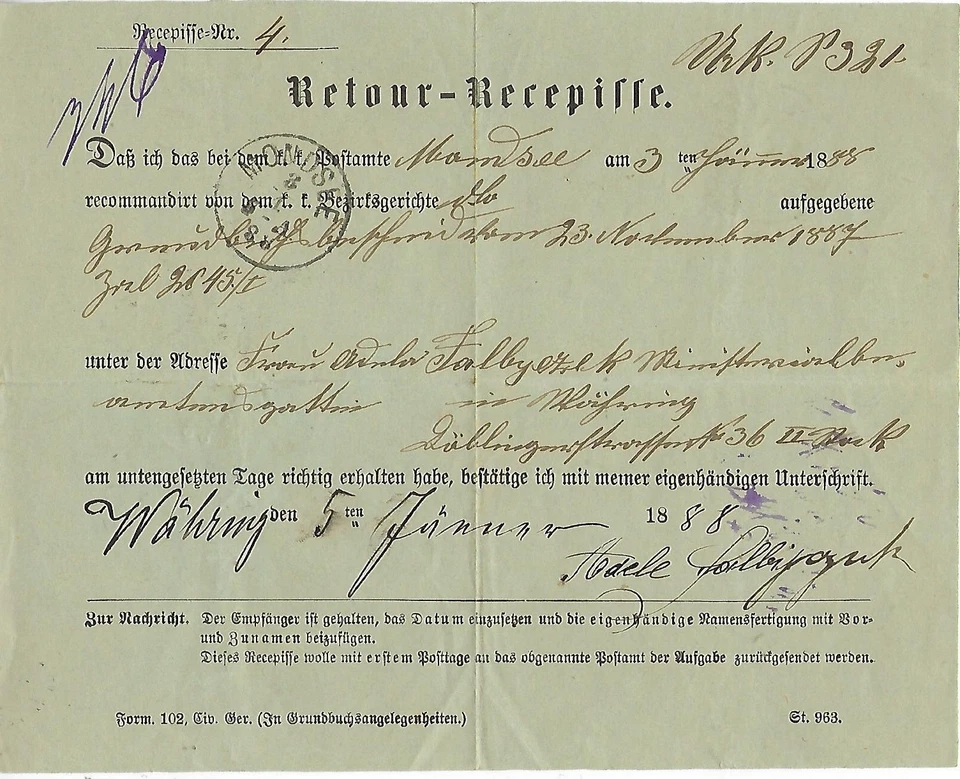 Recepisse-Nr. 4.
Urk. P 321.
Retour-Recepisse.
Daß ich das bei dem k. k. Postamte Mondsee am 3 ten Jänner 1888
MONDSEE
recommandirt von dem k. k. Bezirksgerichte dto aufgegebene
Grundbuchsbescheid vom 23. November 1887
Zal 2645/t
unter der Adresse Frau Adela Falbyczek Ministerialbe-
amtensgattin in Währing
Döblingerstrasse No 36 II Stock
am untengesetzten Tage richtig erhalten habe, bestätige ich mit meiner eigenhändigen Unterschrift.
Währing den 5 ten Jänner 1888
Adele
Zur Nachricht. Der Empfänger ist gehalten, das Datum einzusetzen und die eigenhändige Namensfertigung mit Vor-
und Zunamen beizufügen.
Dieses Recepisse wolle mit erstem Posttage an das obgenannte Postamt der Aufgabe zurückgesendet werden.
Form. 102, Civ. Ger. (In Grundbuchsangelegenheiten.) St. 963.